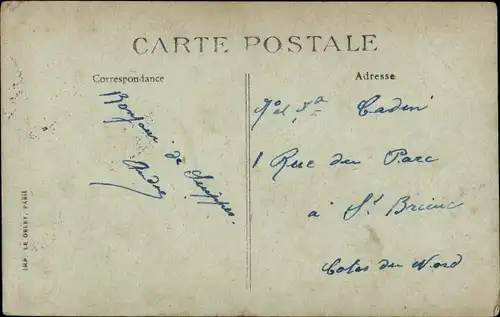 CARTE POSTALE
Correspondance
Adresse
Bonjour
de Suippes.
André
Cadin
1 Rue du Parc
à St Brieuc
Cotes du Nord
IMP. LE DELEY, PARIS